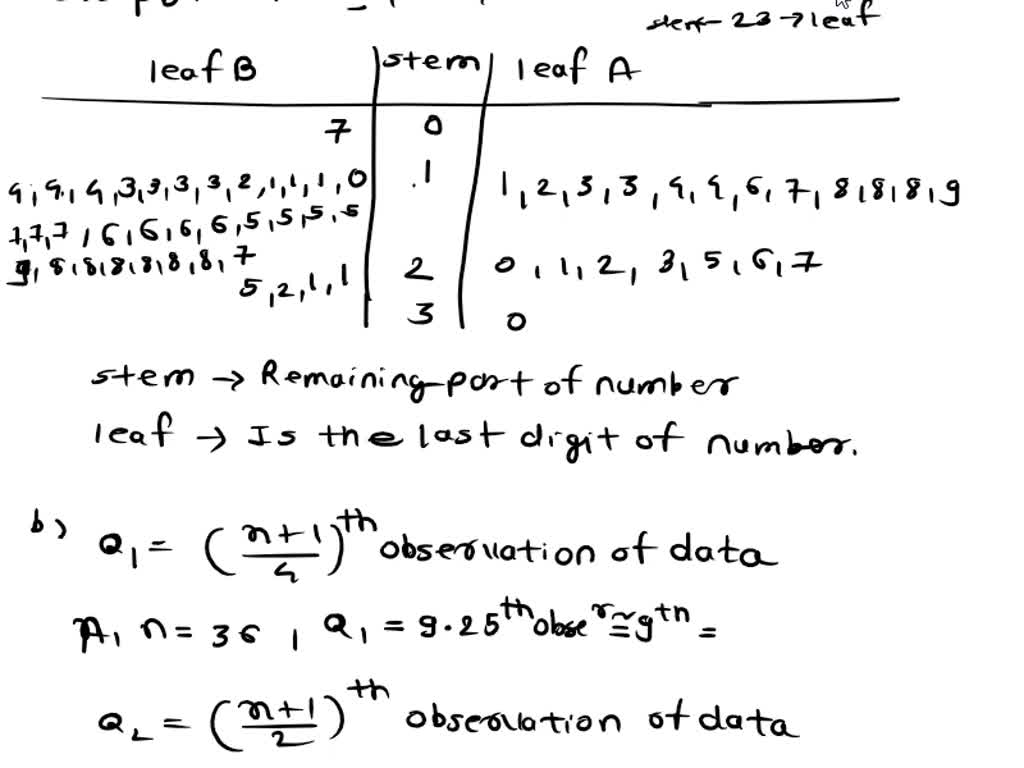 stem← 23 → leaf
leaf B stem leaf A
7 0
4,4,4,3,3,3,3,2,1,1,1,0 1 1,2,3,3,4,4,6,7,8,8,8,9
7,7,7,6,6,6,6,5,5,5,5
9,8,8,8,8,8,8,7
5,2,1,1 2 0,1,2,3,5,6,7
3 0
stem → Remaining part of number
leaf → Is the last digit of number.
b) Q₁ = (n+1/4)th observation of data
A, n = 36, Q₁ = 9.25th obser ≅ 9th =
Q₂ = (n+1/2)th observation of data